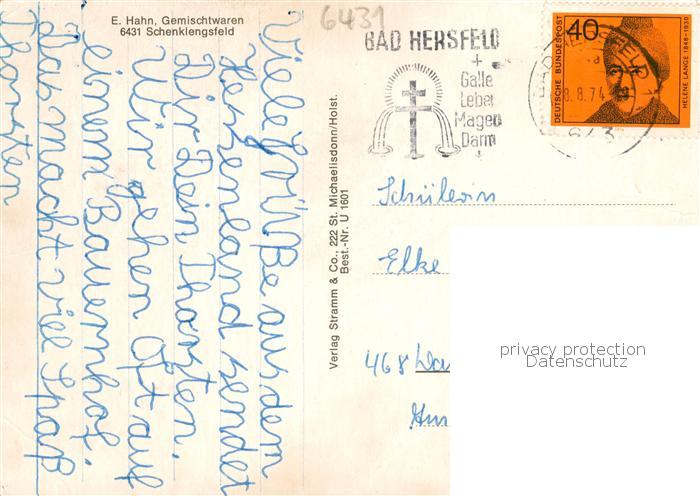 E. Hahn, Gemischtwaren
6431 Schenklengsfeld
Viele Grüße aus dem
Hessenland sendet
Dir Dein Thorsten.
Wir gehen Oft auf
einem Bauernhof.
Das macht viel Spaß
Thorsten
Verlag Stramm & Co., 222 St. Michaelisdonn/Holst.
Best.-Nr. U 1601
6431
BAD HERSFELD
Galle
Leber
Magen
Darm
BAD HERSFELD 1
a
8.8.74
643
DEUTSCHE BUNDESPOST
40
HELENE LANGE 1848-1930
Schülerin
Elke
468
privacy protection
Datenschutz